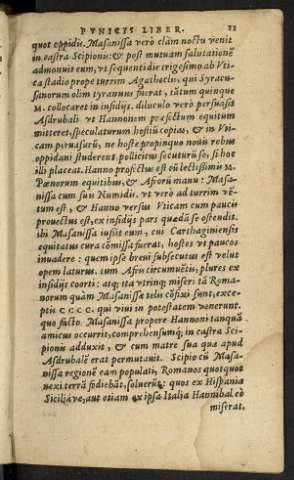 PVNICVS LIBER.
quot oppidis. Masanissa verò clàm noctu venit
in castra Scipionis: & post mutuam salutationẽ
admonuit eum, vt sequenti die
ca stadio prope turrim Agathoclis, qui Syracu-
sanorum olim tyrannus fuerat, tãtum quinque
M. collocaret in insidijs. diluculo verò persuasit
Asdrubali vt Hannonem præfectum equitum
mitteret, speculaturum hostiũ copias, & in Vti-
cam peruasurũ, ne hoste propinquo nouis rebus
oppidani studerent. pollicitus secuturũ se, si hoc
illi placeat. Hanno profectus est cũ lectissimis M.
Pœnorum equitibus, & Afrorũ manu: Masa-
nissa cum suis Numidis. vt verò ad turrim vẽ-
tum est, & Hanno versus Vticam cum paucis
prouectus est, ex insidijs pars quædã se ostendit.
ibi Masanissa iussit eum, cui Carthaginiensis
equitatus cura cõmissa fuerat, hostes vt paucos
inuadere: quem ipse breui subsecutus est velut
opem laturus, tum Afris circumuẽtis, plures ex
insidijs coorti: atq; ita vtrinq; miseri tã Roma-
norum quàm Masanissæ telis cõfixi sunt, exce-
ptis CCCC. qui viui in potestatem venerunt.
quo facto. Masanissa propere Hannoni tanquã
amicus occurrit, comprehensumq; in castra Sci-
pionis adduxit, & cum matre sua quæ apud
Asdrubalẽ erat permutauit. Scipio cũ Masa-
nissa regionẽ eam populati, Romanos quotquot
nexi terrã fodiebãt, soluerũt: quos ex Hispania
Sicilia ve, aut etiam ex ipsa Italia Hannibal eò
miserat.